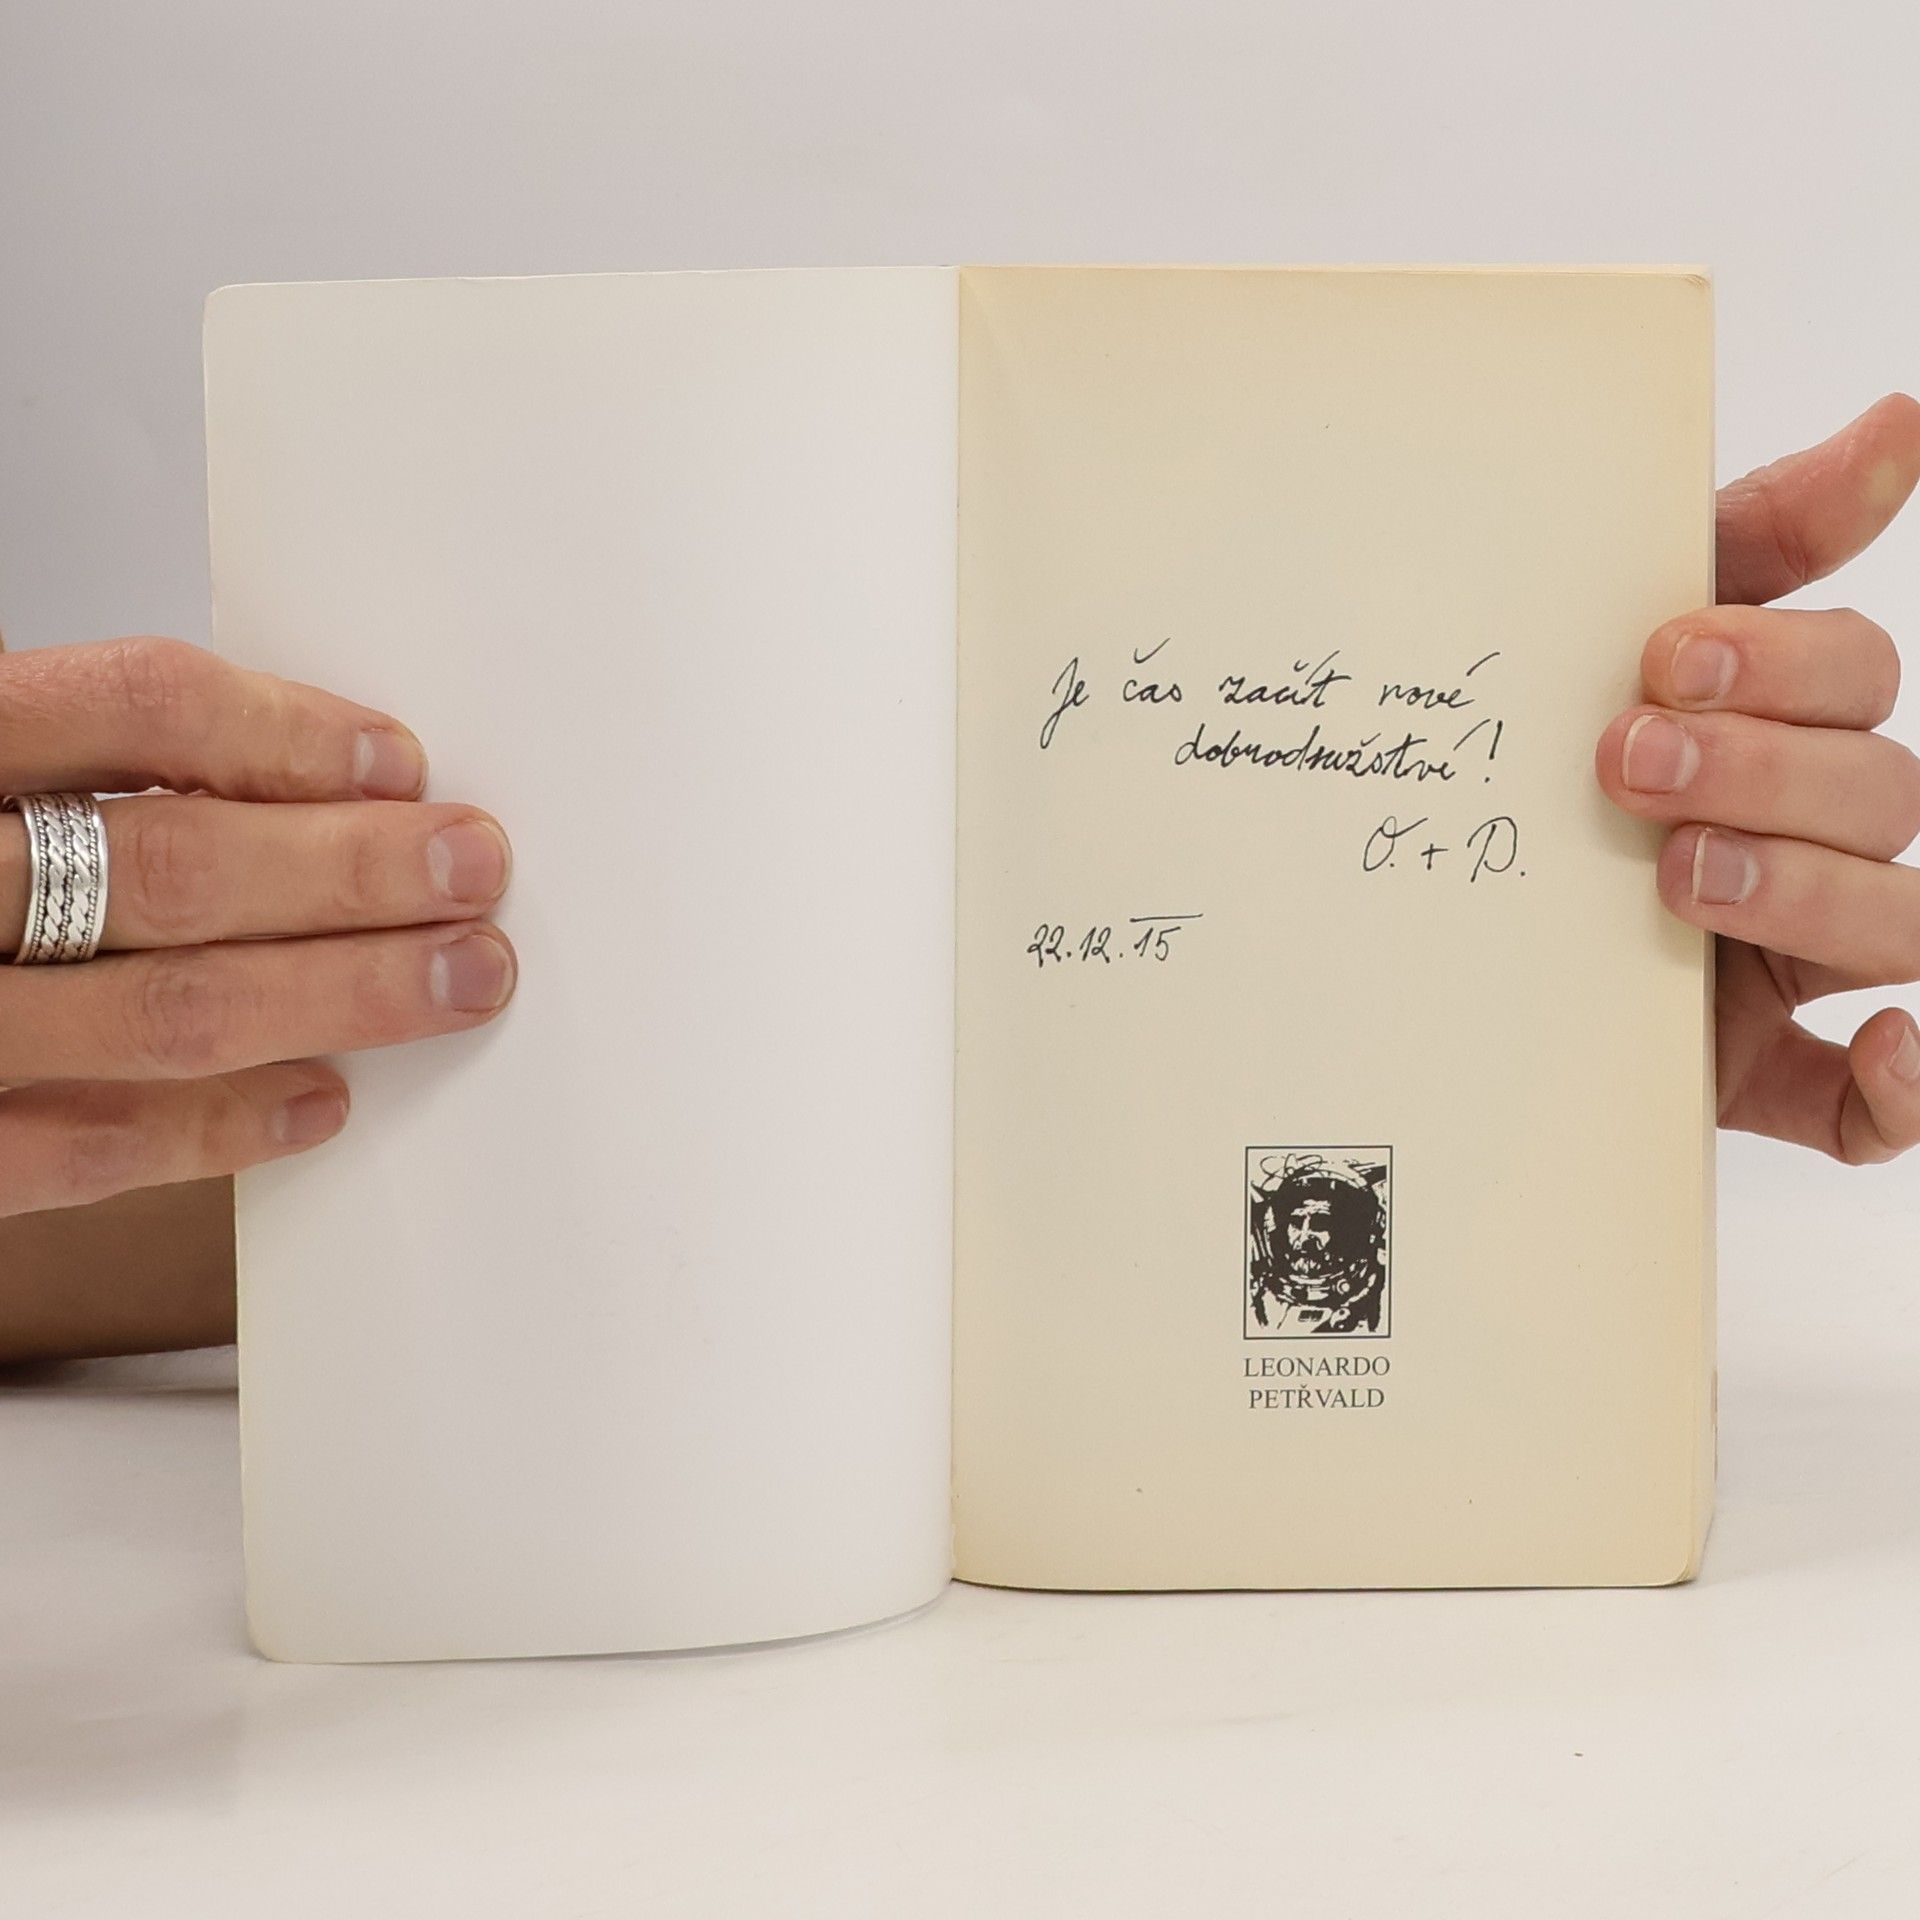 Je čas začít nové
dobrodružství!
O. + D.
22.12.15
LEONARDO
PETŘVALD